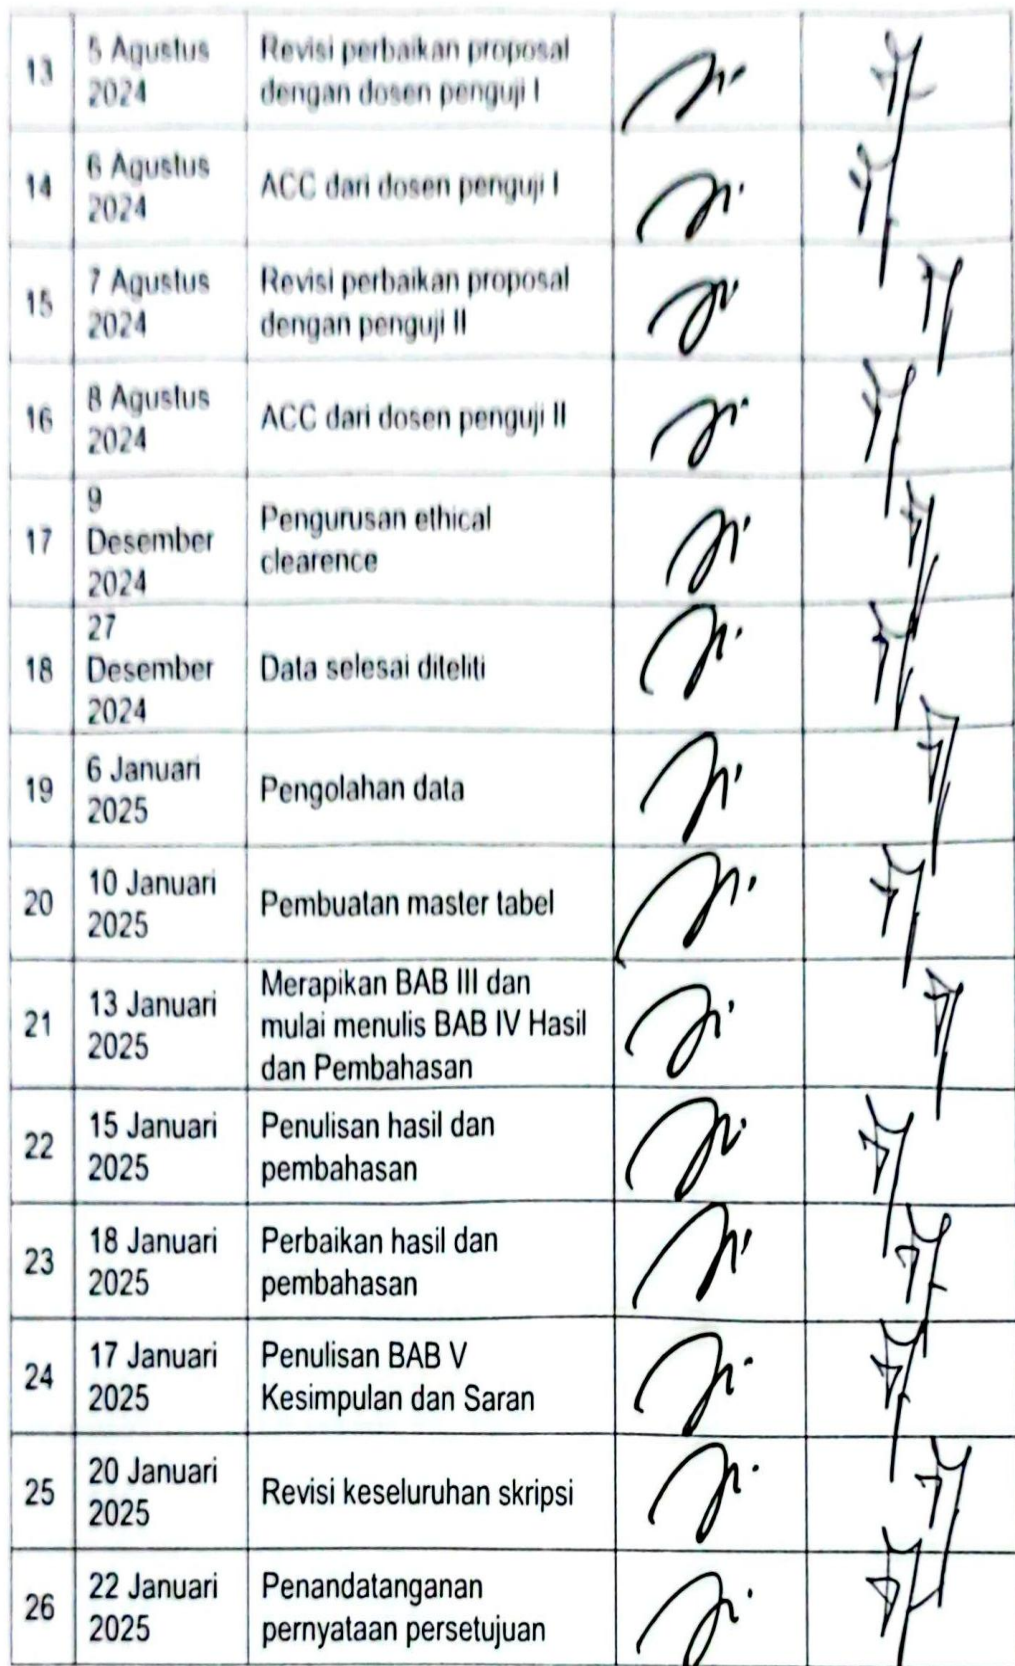 13
5 Agustus
2024
Revisi perbaikan proposal
dengan dosen penguji I
14
6 Agustus
2024
ACC dari dosen penguji I
15
7 Agustus
2024
Revisi perbaikan proposal
dengan penguji II
16
8 Agustus
2024
ACC dari dosen penguji II
17
9
Desember
2024
Pengurusan ethical
clearence
18
27
Desember
2024
Data selesai diteliti
19
6 Januari
2025
Pengolahan data
20
10 Januari
2025
Pembuatan master tabel
21
13 Januari
2025
Merapikan BAB III dan
mulai menulis BAB IV Hasil
dan Pembahasan
22
15 Januari
2025
Penulisan hasil dan
pembahasan
23
18 Januari
2025
Perbaikan hasil dan
pembahasan
24
17 Januari
2025
Penulisan BAB V
Kesimpulan dan Saran
25
20 Januari
2025
Revisi keseluruhan skripsi
26
22 Januari
2025
Penandatanganan
pernyataan persetujuan